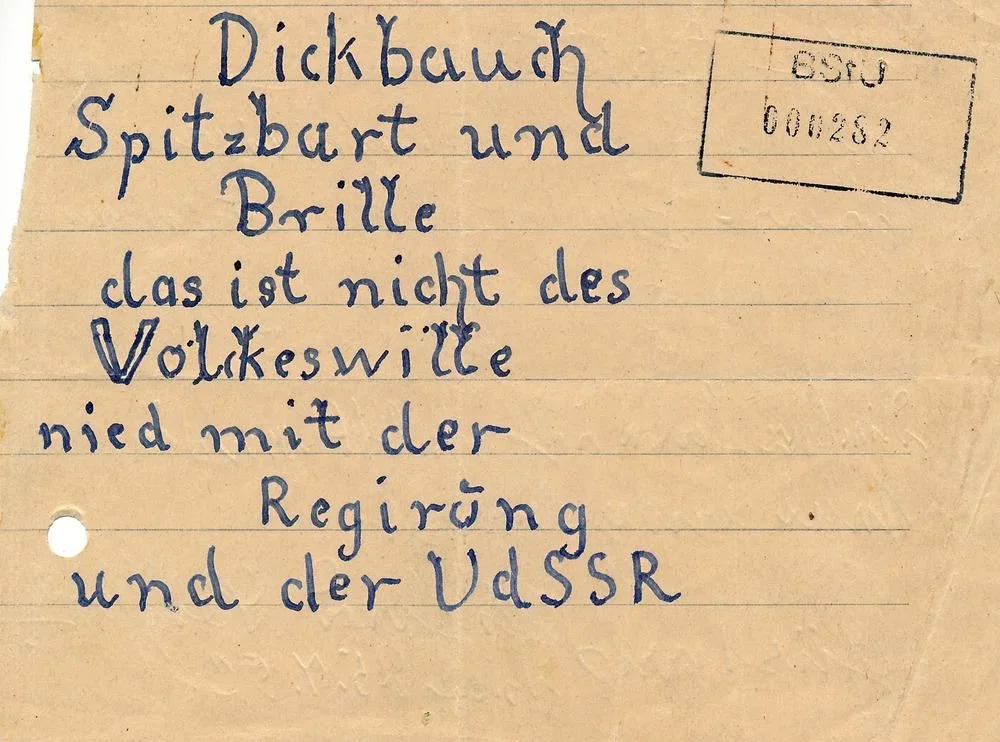 Dickbauch
Spitzbart und
Brille
das ist nicht des
Volkeswille
nied mit der
Regirŭng
und der UdSSR
BStU
000282